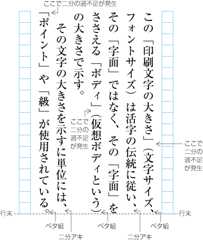 ここで二分の過不足が発生
この「印刷文字の大きさ」（文字サイズ、
フォントサイズ）は活字の伝統に従い、
その「字面」ではなく、その「字面」を
ささえる「ボディ」（仮想ボディという）
の大きさで示す。
その文字の大きさを示すに単位には、
「ポイント」や「級」が使用されている。
ここで
二分の
過不足
が発生
ここで二分の
過不足が発生
行末
行末
ベタ組
ベタ組
ベタ組
二分アキ
二分アキ